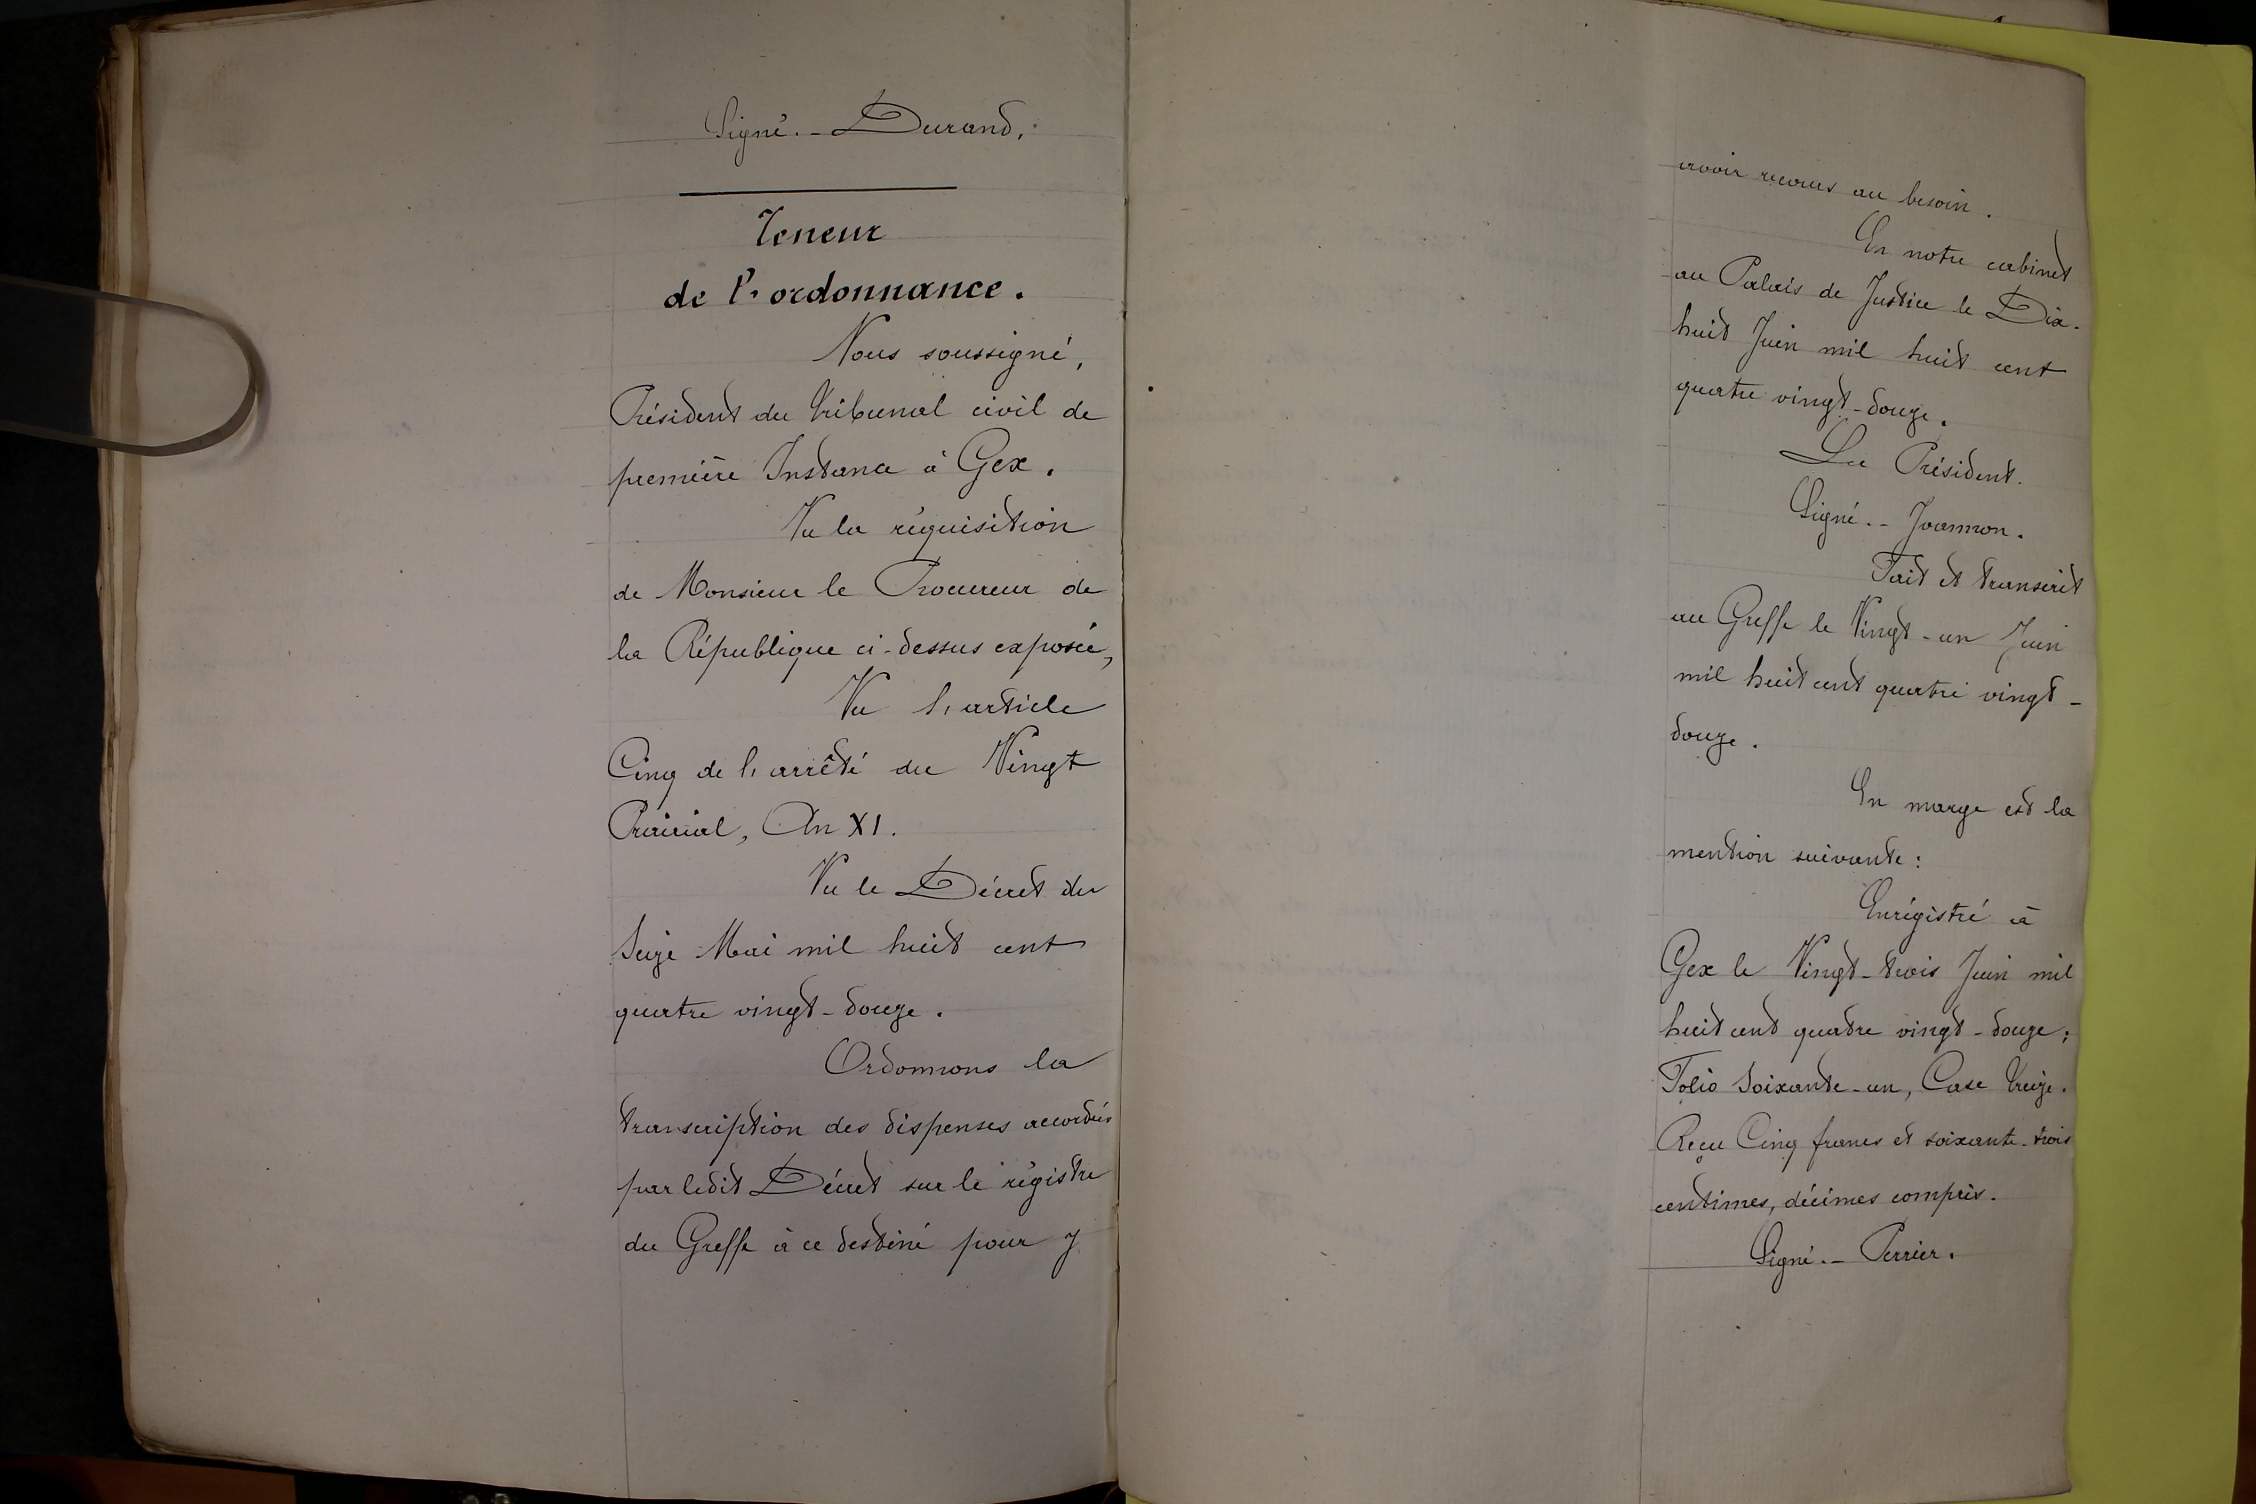 Signé. - Durand.
Teneur
de l'ordonnance.
Nous soussigné,
Président du Tribunal civil de
première Instance à Gex.
Vu la réquisition
de Monsieur le Procureur de
la République ci-dessus exposée,
Vu l'article
Cinq de l'arrêté du Vingt
Prairial, An XI.
Vu le Décret du
Seize Mai mil huit cent
quatre vingt-douze.
Ordonnons la
transcription des dispenses accordées
par ledit Décret sur le régistre
du Greffe à ce destiné pour y
avoir recours au besoin.
En notre cabinet
au Palais de Justice le Dix-
huit Juin mil huit cent
quatre vingt-douze.
Le Président.
Signé. - Joannon.
Fait et transcrit
au Greffe le Vingt-un Juin
mil huit cent quatre vingt-
douze.
En marge est la
mention suivante:
Enrégistré à
Gex le Vingt-trois Juin mil
huit cent quatre vingt-douze;
Folio Soixante-un, Case Treize.
Reçu Cinq francs et soixante-trois
centimes, décimes compris.
Signé. - Perrier.